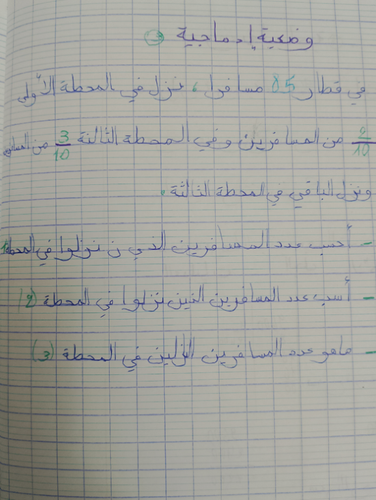 وضعية إدماجية
في قطار 85 مسافرا، نزل في المحطة الأولى
2/10 من المسافرين وفي المحطة الثالنة 3/10 من
ونزل الباقي في المحطة الثالثة.
- أحسب عدد المسافرين الذين نزلوا في المحطة 1
- أسب عدد المسافرين الذين نزلوا في المحطة (2)
- ماهو عدد المسافرين الزلين في المحطة (3)